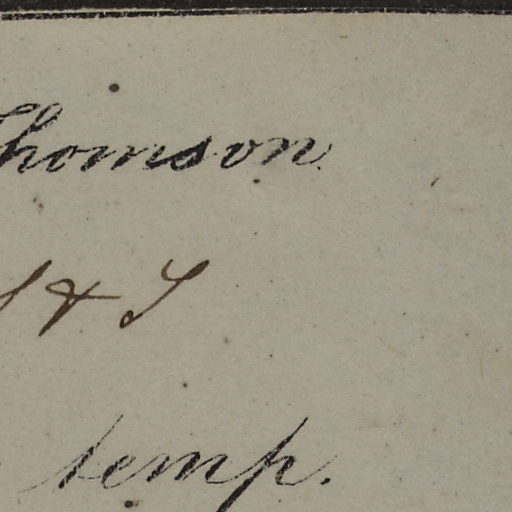 Thomson
& S
temp.